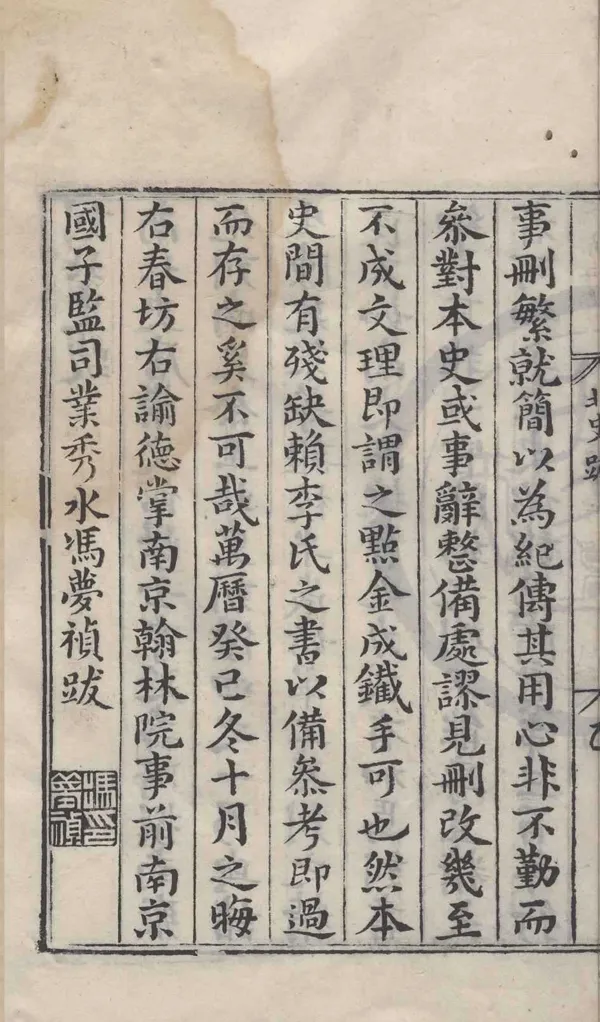 北史跋
事刪繁就簡以為紀傳其用心非不勤而
叅對本史或事辭整備處謬見刪改幾至
不成文理即謂之點金成鐵手可也然本
史間有殘缺賴李氏之書以備叅考即過
而存之奚不可哉萬曆癸巳冬十月之晦
右春坊右諭德掌南京翰林院事前南京
國子監司業秀水馮夢禎跋
馮夢禎印